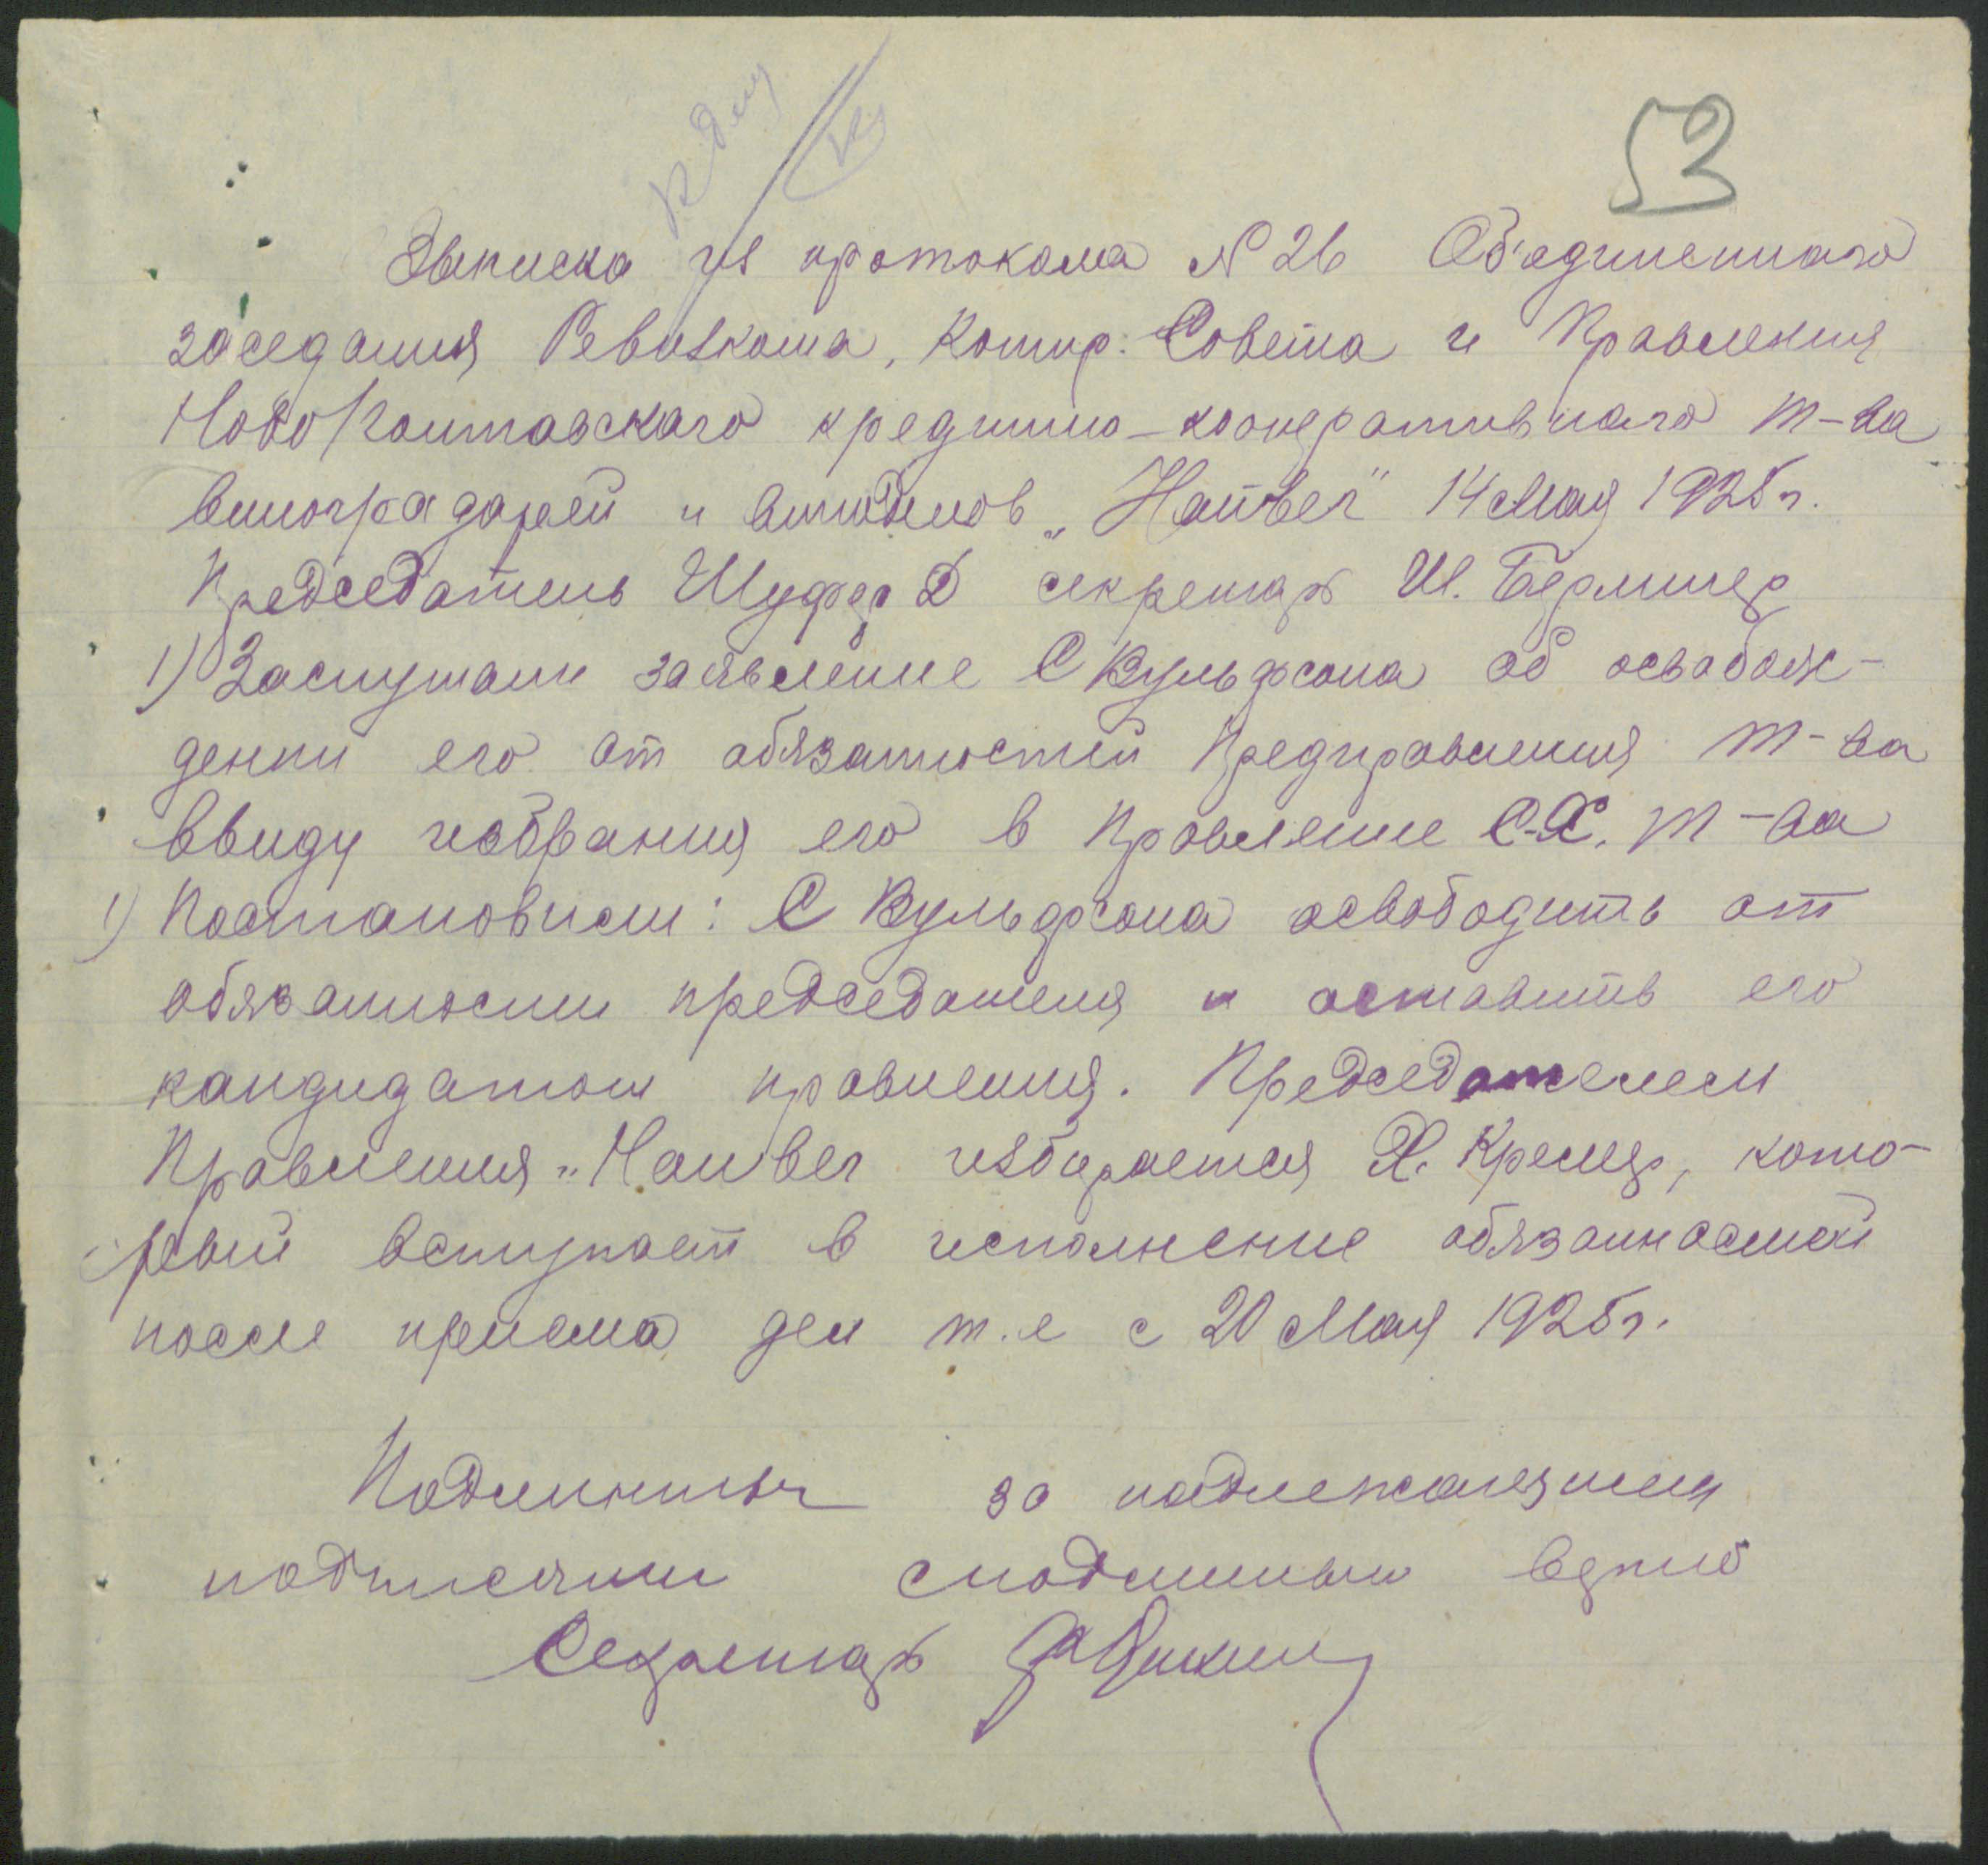 К делу
53
Выписка из протокола N 26 Об'единеннаго
заседания Ревизкома, Контр. Совета и Правления
НовоПолтавскаго кредитно-кооперативнаго т-ва
виноградарей и виноделов „Наивег" 14 Мая 1925 г.
Председатель Шуфер Д секретарь Ш. Берлинер
1) Заслушали заявление С Вульфсона об освобож-
дении его от обязаностей Предправления т-ва
Ввиду избрания его в Правление С.-Х. т-ва
1) Постановили: С Вульфсона освободить от
обязанности председателя и оставить его
кандидатом правления. Председателем
Правления „Наивег избирается Х. Кремер, кото-
рый вступает в исполнение обязанностей
после приема дел т.е с 20 Мая 1925 г.
Подлинный за надлежащими
подписями сподлинным верно
Секретарь